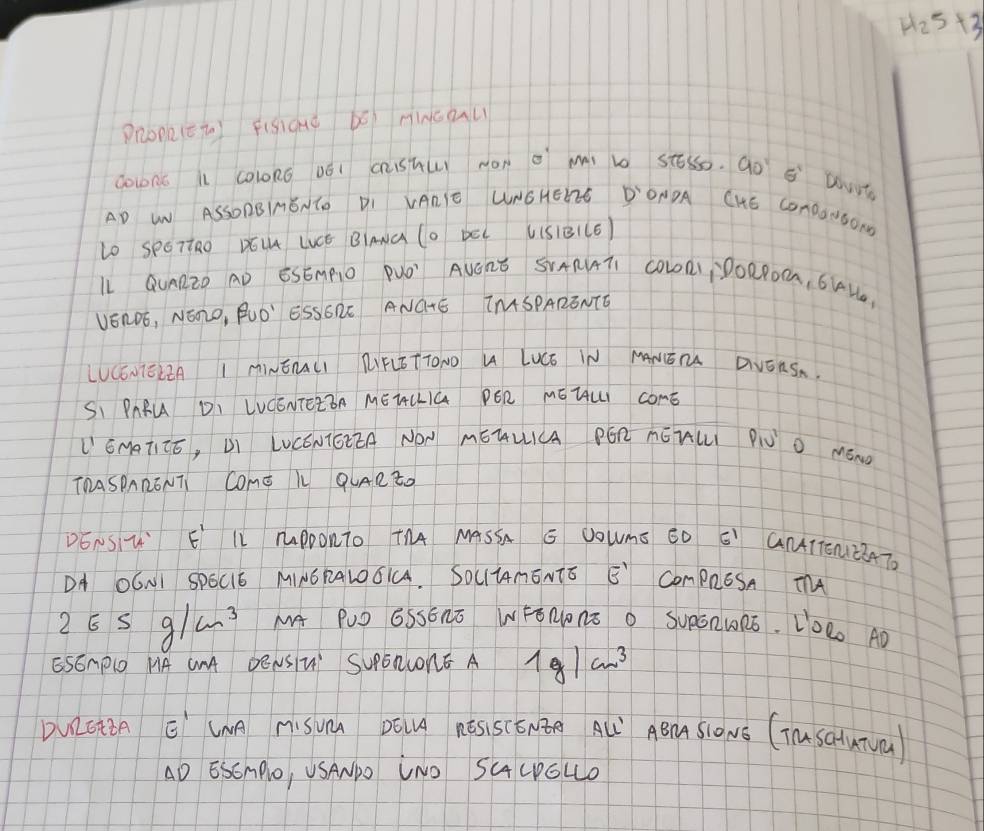 H2S +3
PROPRIETA' FISICHE DEI MINERALI
COLORE IL COLORE DEI CRISTALLI NON E' MAI LO STESSO. CIO' E' DOVUTO
AD UN ASSORBIMENTO DI VARIE LUNGHEZZE D'ONDA CHE COMPONGONO
LO SPETTRO DELLA LUCE BIANCA (O DEL VISIBILE)
IL QUARZO AD ESEMPIO PUO' AVERE SVARIATI COLORI, PORPORA, GIALLO,
VERDE, NERO, PUO' ESSERE ANCHE TRASPARENTE
LUCENTEZZA I MINERALI RIFLETTONO LA LUCE IN MANIERA DIVERSA.
SI PARLA DI LUCENTEZZA METALLICA PER METALLI COME
L'EMATITE, DI LUCENTEZZA NON METALLICA PER METALLI PIU' O MENO
TRASPARENTI COME IL QUARZO
DENSITA' E' IL RAPPORTO TRA MASSA E VOLUME ED E' CARATTERIZZATO
DA OGNI SPECIE MINERALOGICA. SOLITAMENTE E' COMPRESA TRA
2 E 5 g/cm³ MA PUO ESSERE INFERIORE O SUPERIORE. L'ORO AD
ESEMPIO HA UNA DENSITA' SUPERIORE A 1g/cm³
DUREZZA E' UNA MISURA DELLA RESISTENZA ALL'ABRASIONE (TRASCHIATURA)
AD ESEMPIO, USANDO UNO SCALPELLO